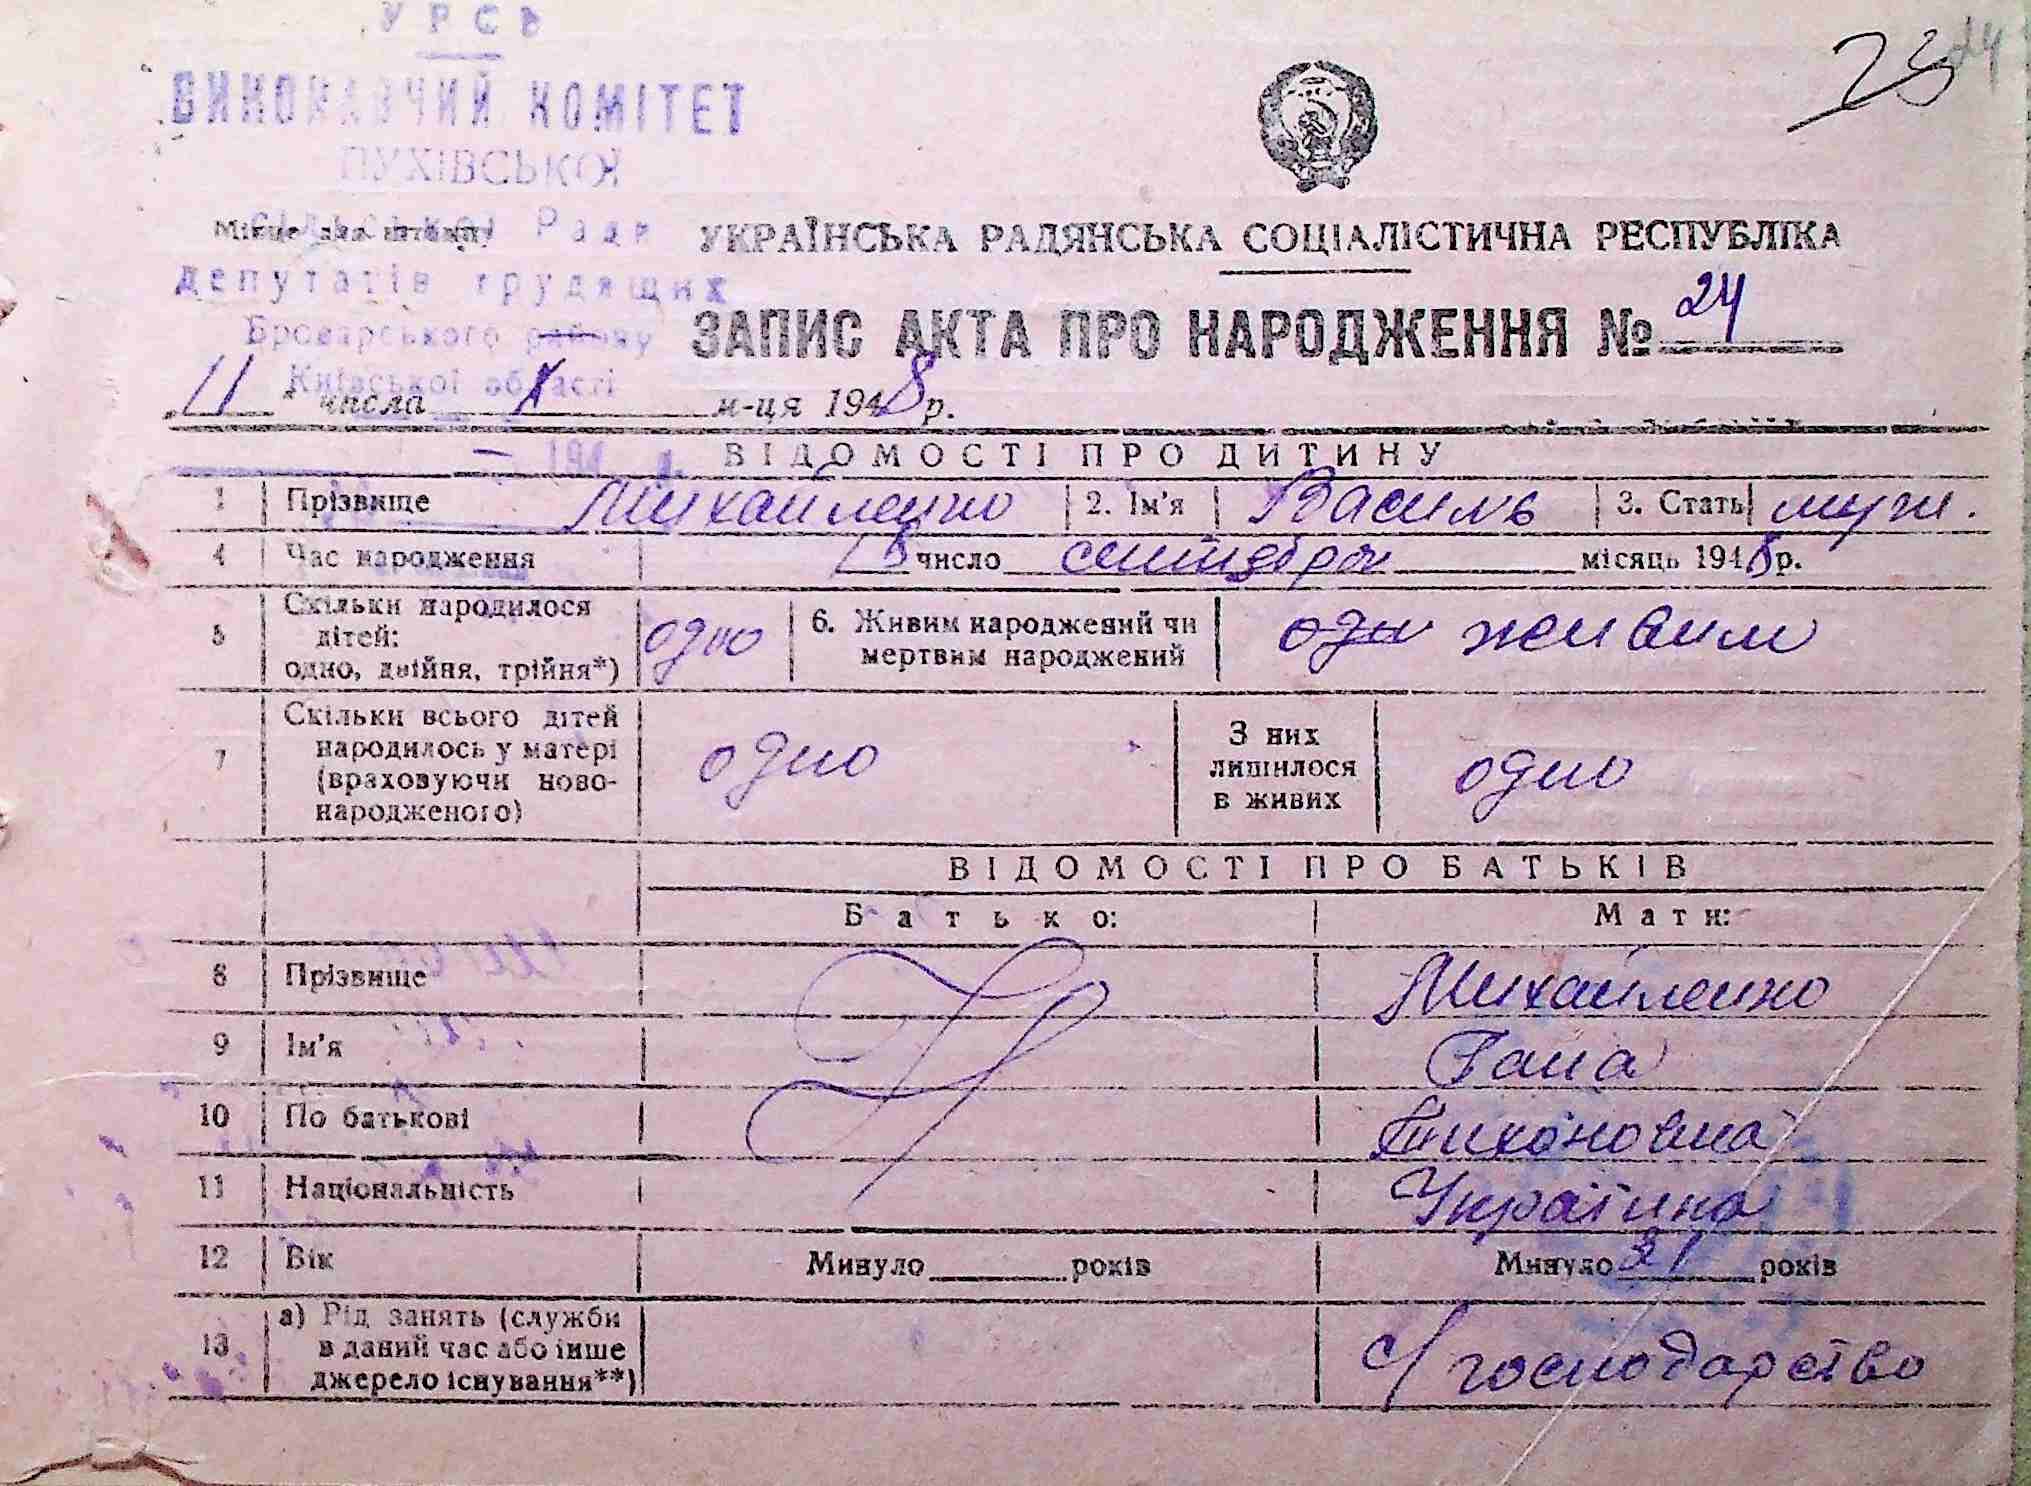 УРСР
ВИКОНАВЧИЙ КОМІТЕТ
ПУХІВСЬКОЇ
сільської Ради
депутатів трудящих
Броварського району
Київської області
Місце для штампу
23
24
УКРАЇНСЬКА РАДЯНСЬКА СОЦІАЛІСТИЧНА РЕСПУБЛІКА
ЗАПИС АКТА ПРО НАРОДЖЕННЯ № 24
„11" числа X м-ця 1948 р.
194 р.
ВІДОМОСТІ ПРО ДИТИНУ
1 Прізвище Михайленко 2. Ім'я Василь 3. Стать муж.
4 Час народження число сентября місяць 1948 р.
5 Скільки народилося дітей: одно, двійня, трійня*) одно 6. Живим народжений чи мертвим народжений одн живим
7 Скільки всього дітей народилось у матері (враховуючи новонародженого) одно З них лишилося в живих одно
ВІДОМОСТІ ПРО БАТЬКІВ
Батько: Мати:
8 Прізвище Михайленко
9 Ім'я Гана
10 По батькові Тихоновна
11 Національність Українка
12 Вік Минуло років Минуло 31 років
13 а) Рід занять (служби в даний час або інше джерело існування**) с/господарство